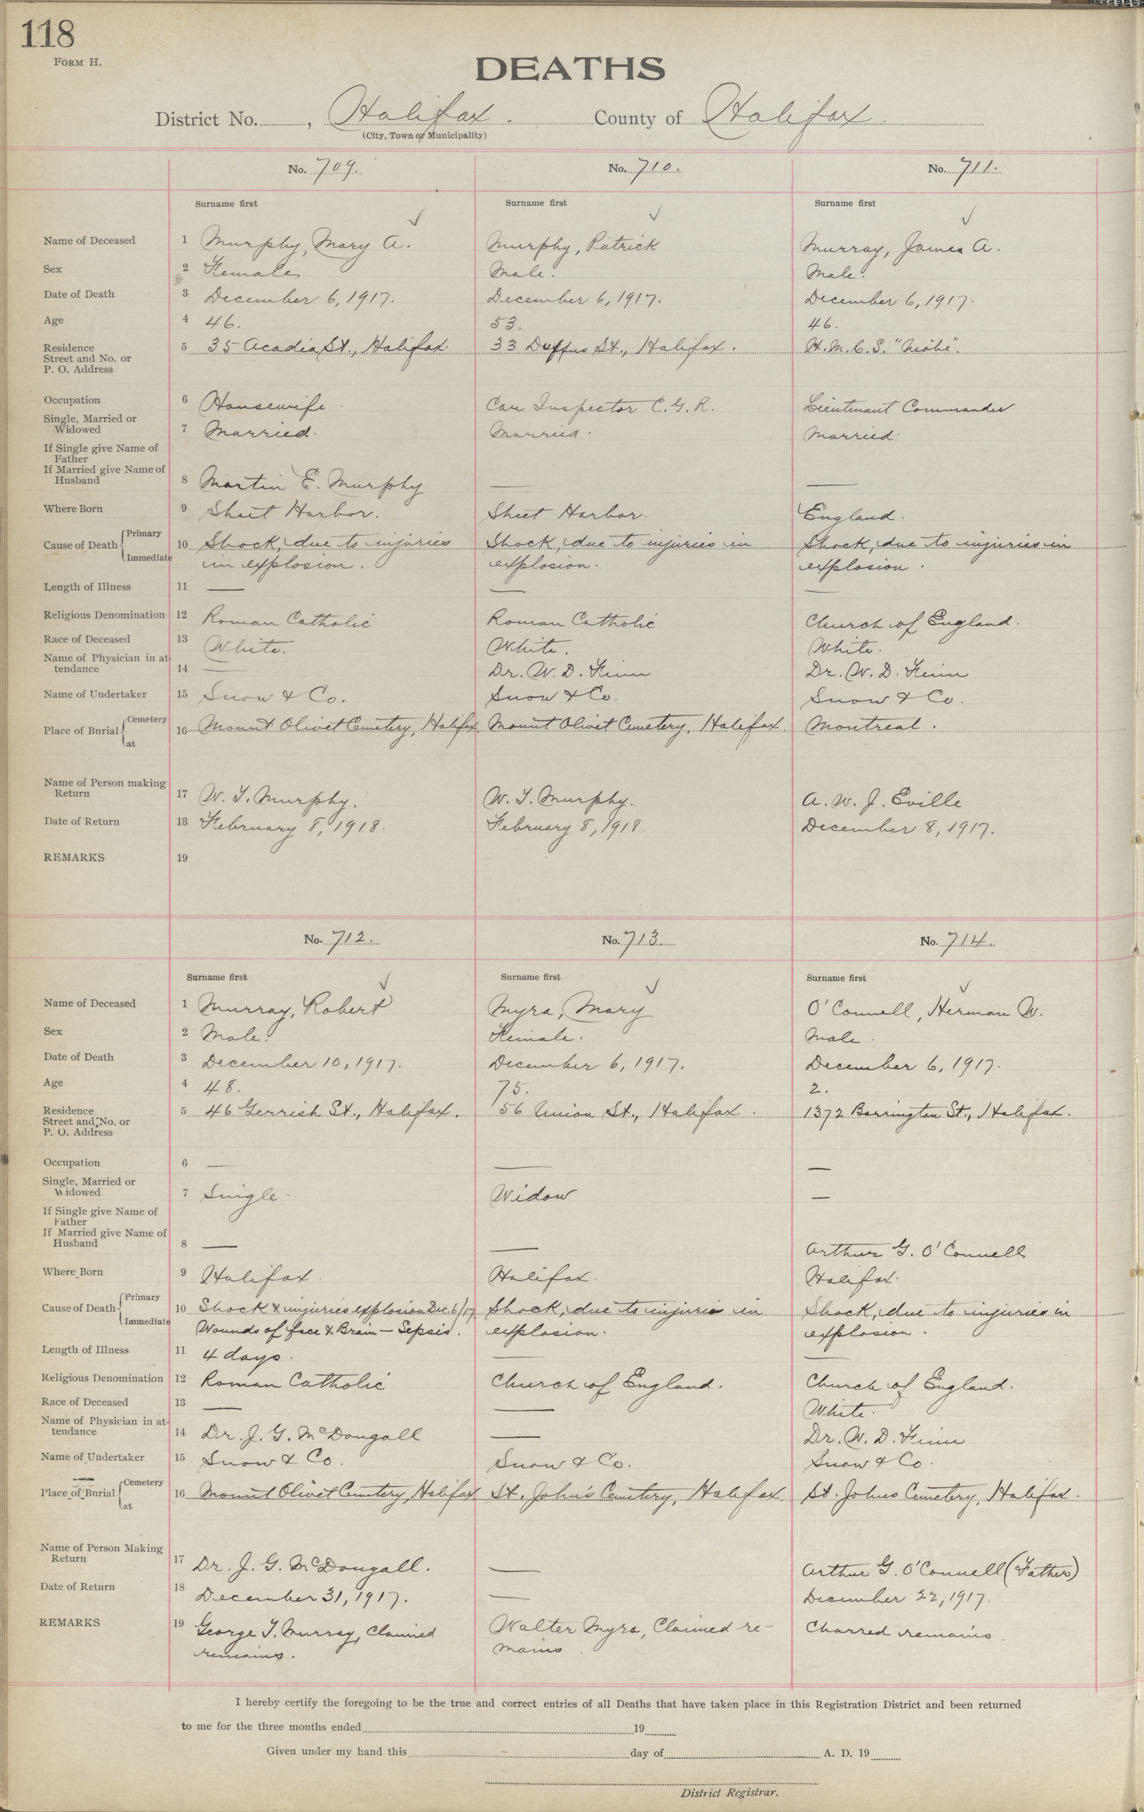 118
FORM H.
DEATHS
District No. , Halifax. County of Halifax.
(City, Town or Municipality)
No. 709. No. 710. No. 711.
Surname first Surname first Surname first
Name of Deceased 1 Murphy, Mary A. Murphy, Patrick Murray, James A.
Sex 2 Female Male. Male.
Date of Death 3 December 6, 1917. December 6, 1917. December 6, 1917.
Age 4 46. 53. 46.
Residence 5 35 Acadia St., Halifax. 33 Duffus St., Halifax. H.M.C.S. "Niobe".
Street and No. or
P. O. Address
Occupation 6 Housewife. Car Inspector C.G.R. Lieutenant Commander
Single, Married or
Widowed 7 Married. Married. Married.
If Single give Name of
Father
If Married give Name of
Husband 8 Martin E. Murphy — —
Where Born 9 Sheet Harbor. Sheet Harbor. England.
Cause of Death Primary 10 Shock, due to injuries Shock, due to injuries in Shock, due to injuries in
Immediate in explosion. explosion. explosion.
Length of Illness 11 — — —
Religious Denomination 12 Roman Catholic Roman Catholic Church of England.
Race of Deceased 13 White. White. White.
Name of Physician in at-
tendance 14 — Dr. W. D. Finn Dr. W. D. Finn
Name of Undertaker 15 Snow & Co. Snow & Co. Snow & Co.
Place of Burial Cemetery at 16 Mount Olivet Cemetery, Halifax. Mount Olivet Cemetery, Halifax. Montreal.
Name of Person making
Return 17 W. J. Murphy. W. J. Murphy. A. W. J. Eville
Date of Return 18 February 8, 1918. February 8, 1918. December 8, 1917.
REMARKS 19
No. 712. No. 713. No. 714.
Surname first Surname first Surname first
Name of Deceased 1 Murray, Robert Myra, Mary O'Connell, Herman W.
Sex 2 Male. Female. Male.
Date of Death 3 December 10, 1917. December 6, 1917. December 6, 1917.
Age 4 48. 75. 2.
Residence 5 46 Gerrish St., Halifax. 56 Union St., Halifax. 1372 Barrington St., Halifax.
Street and No. or
P. O. Address
Occupation 6 — — —
Single, Married or
Widowed 7 Single. Widow —
If Single give Name of
Father
If Married give Name of
Husband 8 — — Arthur G. O'Connell
Where Born 9 Halifax. Halifax. Halifax.
Cause of Death Primary 10 Shock & injuries explosion Dec. 6/17 Shock, due to injuries in Shock, due to injuries in
Immediate Wounds of face & Brain — Sepsis. explosion. explosion.
Length of Illness 11 4 days. — —
Religious Denomination 12 Roman Catholic Church of England. Church of England.
Race of Deceased 13 — — White.
Name of Physician in at-
tendance 14 Dr. J. G. McDougall — Dr. W. D. Finn
Name of Undertaker 15 Snow & Co. Snow & Co. Snow & Co.
Place of Burial Cemetery at 16 Mount Olivet Cemetery, Halifax St. John's Cemetery, Halifax. St. Johns Cemetery, Halifax.
Name of Person Making
Return 17 Dr. J. G. McDougall. — Arthur G. O'Connell (Father)
Date of Return 18 December 31, 1917. — December 22, 1917.
REMARKS 19 George T. Murray, Claimed Walter Myra, Claimed re- Charred remains.
remains. mains
I hereby certify the foregoing to be the true and correct entries of all Deaths that have taken place in this Registration District and been returned
to me for the three months ended 19
Given under my hand this day of A. D. 19
District Registrar.